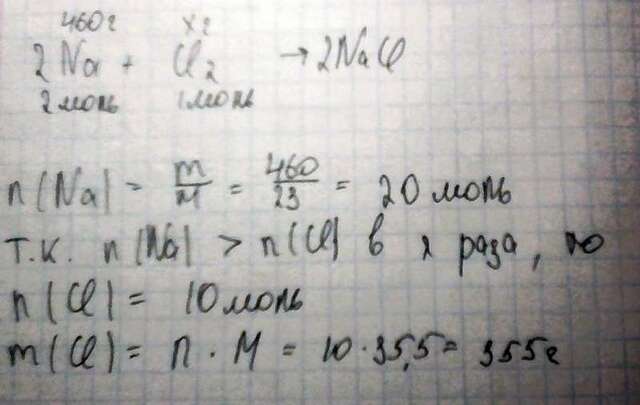 460г хг
2Na + Cl₂ → 2NaCl
2моль 1моль
n(Na) = m/M = 460/23 = 20 моль
т.к. n(Na) > n(Cl) в 2 раза, то
n(Cl) = 10 моль
m(Cl) = n · M = 10 · 35,5 = 355г